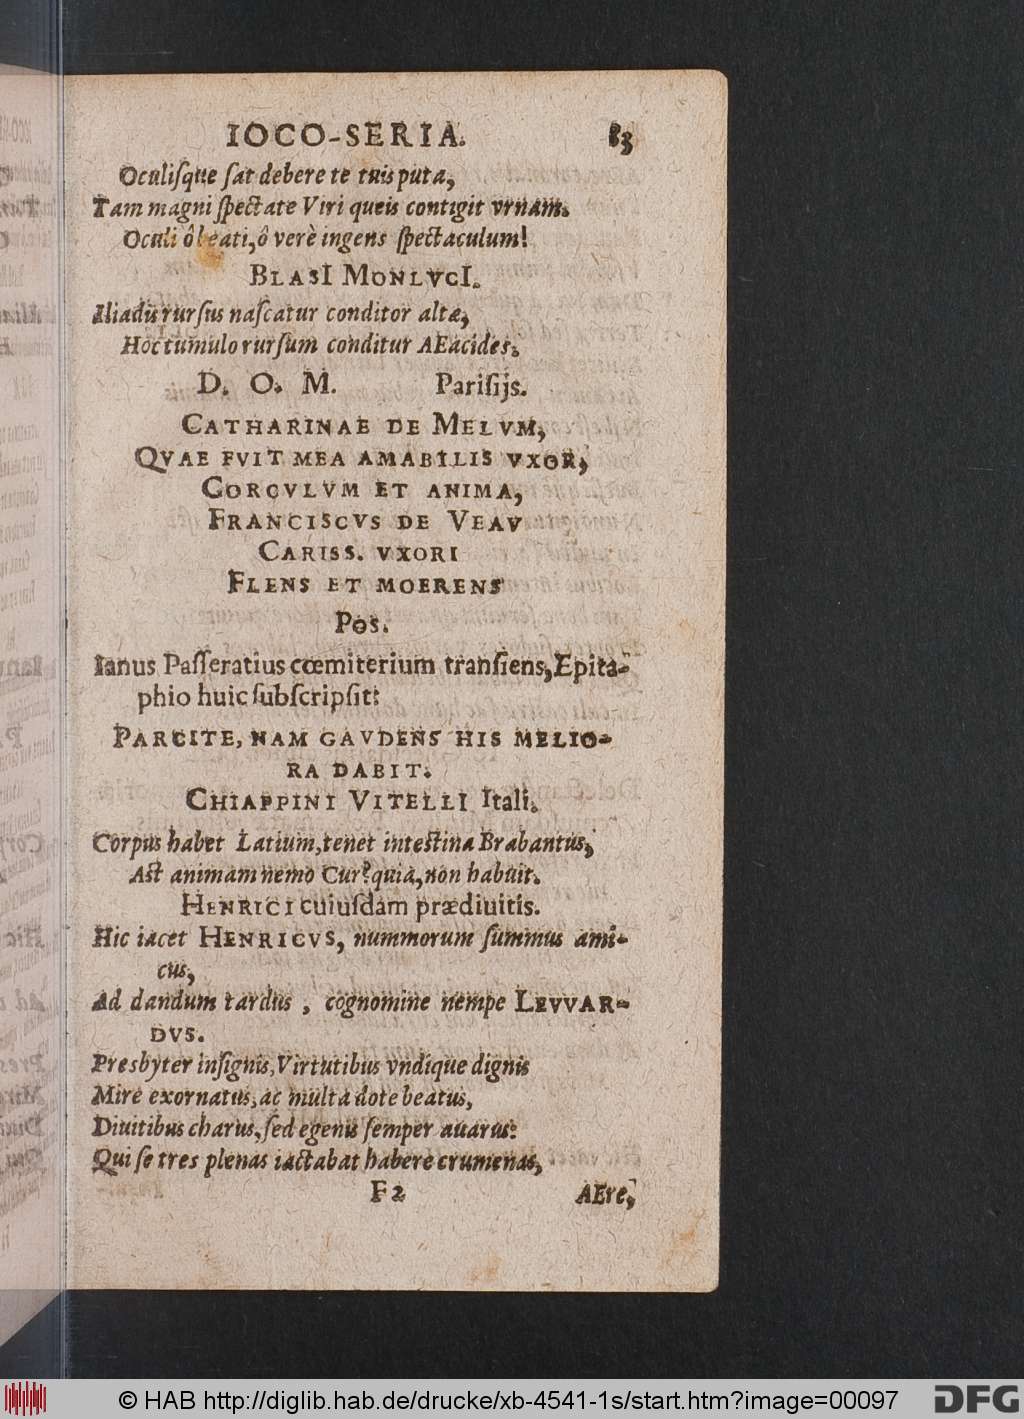 IOCO-SERIA. 83
Oculiſque ſat debere te tuis puta,
Tam magni ſpectate Viri queis contigit vrnam.
Oculi ô beati, ô verè ingens ſpectaculum!
BLASI MONLVCI.
Iliadis rurſus naſcatur conditor altæ,
Hoc tumulo rurſum conditur AEacides.
D. O. M. Pariſijs.
CATHARINAE DE MELVM,
QVAE FVIT MEA AMABILIS VXOR,
CORCVLVM ET ANIMA,
FRANCISCVS DE VEAV
CARISS. VXORI
FLENS ET MOERENS
POS.
Ianus Paſſeratius cœmiterium tranſiens, Epita-
phio huic ſubſcripſit:
PARCITE, NAM GAVDENS HIS MELIO-
RA DABIT.
CHIAPPINI VITELLI Itali.
Corpus habet Latium, tenet inteſtina Brabantus,
Aſt animam nemo Cur? quia, non habuit.
HENRICI cuiuſdam prædiuitis.
Hic iacet HENRICVS, nummorum ſummus ami-
cus,
Ad dandum tardus, cognomine nempe LEVVAR-
DVS.
Presbyter inſignis, Virtutibus vndique dignis
Mirè exornatus, ac multa dote beatus,
Diuitibus charus, ſed egenis ſemper auarus:
Qui ſe tres plenas iactabat habere crumenas,
F2 AEre,
© HAB http://diglib.hab.de/drucke/xb-4541-1s/start.htm?image=00097 DFG